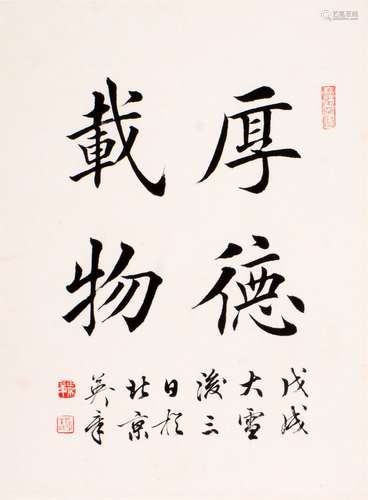 厚德
載物
戊戌
大雪
後三
日於
北京
英章